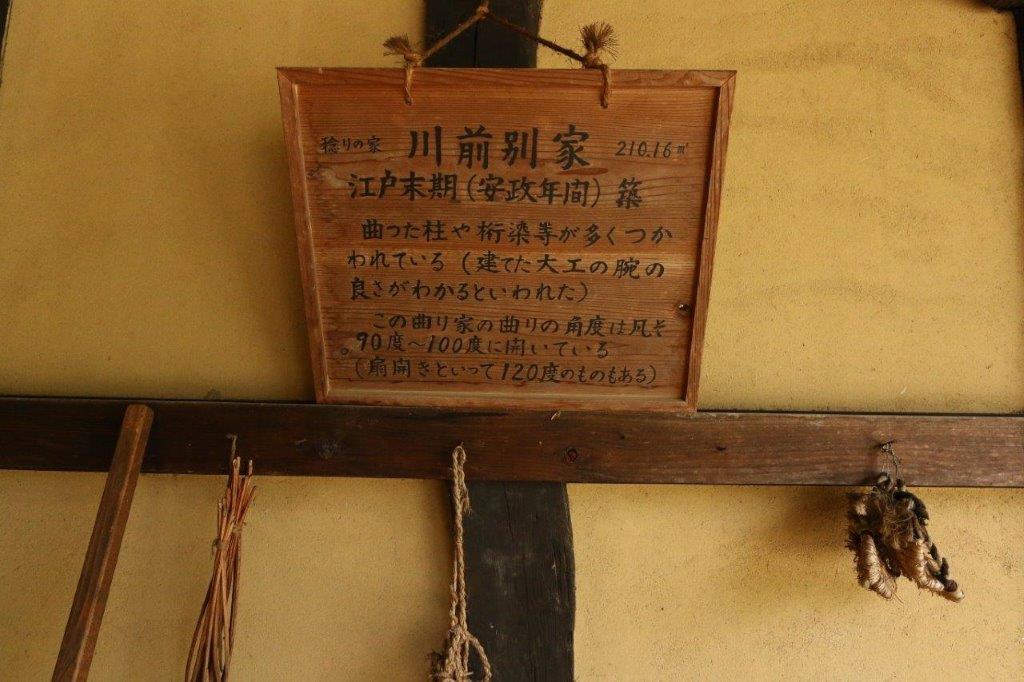 稔りの家 川前別家 210.16㎡
江戸末期(安政年間)築
曲った柱や桁染等が多くつか
われている(建てた大工の腕の
良さがわかるといわれた)
この曲り家の曲りの角度は凡そ
90度〜100度に開いている。
(扇開きといって120度のものもある)